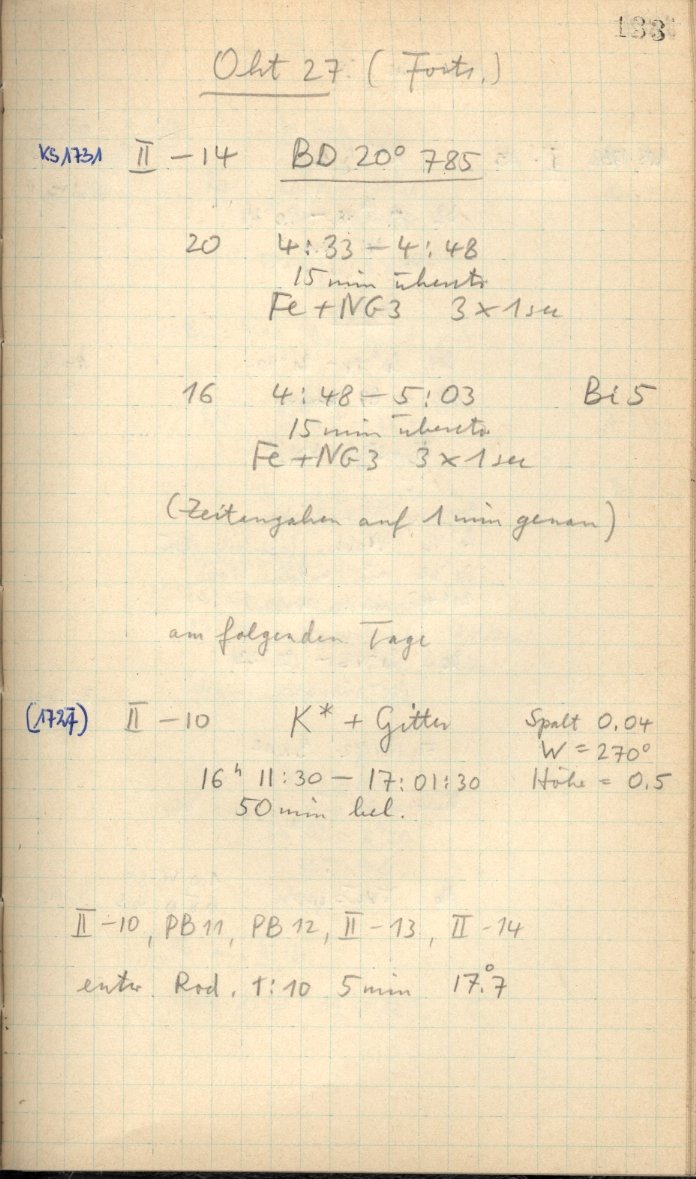 133
Okt 27 (Forts.)
KS1731 II – 14 BD 20° 785
20 4:33 – 4:48
15 min überstr
Fe + NG3 3 x 1 sec
16 4:48 – 5:03 Bi 5
15 min überstr
Fe + NG3 3 x 1 sec
(Zeitangaben auf 1 min genau)
am folgenden Tage
(1727) II – 10 K* + Gitter Spalt 0.04
W = 270°
16h 11:30 – 17:01:30 Höhe = 0.5
50 min bel.
II – 10, PB 11, PB 12, II – 13, II – 14
entw. Rod. 1:10 5 min 17°.7